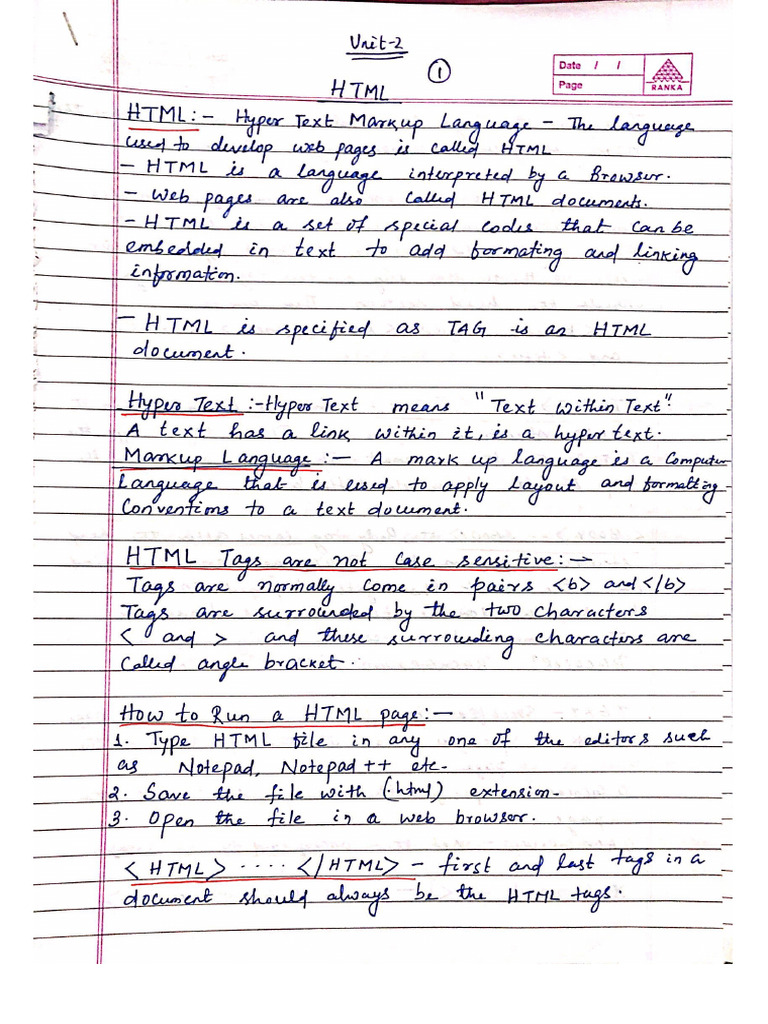 Unit-2
1
Date / /
Page
RANKA
HTML
HTML:- Hyper Text Markup Language - The language
used to develop web pages is called HTML
- HTML is a language interpreted by a Browser.
- Web pages are also called HTML documents.
- HTML is a set of special codes that can be
embedded in text to add formating and linking
information.
- HTML is specified as TAG is an HTML
document.
Hyper Text :- Hyper Text means "Text within Text".
A text has a link within it, is a hyper text.
Markup Language :- A mark up language is a Computer
Language that is used to apply Layout and formatting
Conventions to a text document.
HTML Tags are not case sensitive:-
Tags are normally come in pairs <b> and </b>
Tags are surrounded by the two characters
< and > and these surrounding characters are
Called angle bracket.
How to Run a HTML page:-
1. Type HTML file in any one of the editors such
as Notepad, Notepad++ etc.
2. Save the file with (.html) extension.
3. Open the file in a web browser.
<HTML> .... </HTML> - first and last tags in a
document should always be the HTML tags.